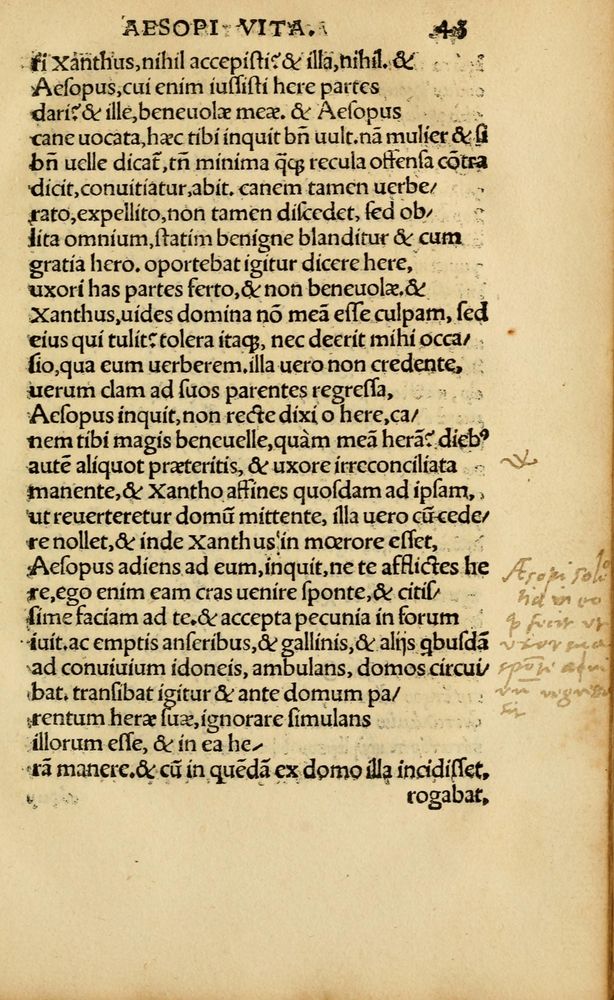 AESOPI VITA. 43
ſi Xanthus, nihil accepiſti? & illa, nihil. &
Aeſopus, cui enim iuſſisti here partes
dari? & ille, beneuolæ meæ. & Aeſopus
cane uocata, hæc tibi inquit bñ uult. nã mulier & ſi
bñ uelle dicat̃, tñ minima q̃q; recula offenſa cõtra
dicit, conuitiatur, abit. canem tamen uerbe/
rato, expellito, non tamen diſcedet, ſed ob/
lita omnium, ſtatim benigne blanditur & cum
gratia hero. oportebat igitur dicere here,
uxori has partes ferto, & non beneuolæ. &
Xanthus, uides domina nõ meã eſſe culpam, ſed
eius qui tulit? tolera itaq;, nec deerit mihi occa/
ſio, qua eum uerberem. illa uero non credente,
uerum clam ad ſuos parentes regreſſa,
Aeſopus inquit, non recte dixi o here, ca/
nem tibi magis beneuelle, quàm meã herã? dieb⁹
autẽ aliquot præteritis, & uxore irreconciliata
manente, & Xantho affines quoſdam ad ipſam,
ut reuerteretur domũ mittente, illa uero cũ cede/
re nollet, & inde Xanthus in mœrore eſſet,
Aeſopus adiens ad eum, inquit, ne te afflictes he
re, ego enim eam cras uenire ſponte, & citiſ/
ſime faciam ad te. & accepta pecunia in forum
iuit. ac emptis anſeribus, & gallinis, & alijs qbuſdã
ad conuiuium idoneis, ambulans, domos circui/
bat. tranſibat igitur & ante domum pa/
rentum heræ ſuæ, ignorare ſimulans
illorum eſſe, & in ea he/
rã manere. & cũ in quẽdã ex domo illa incidiſſet,
rogabat,
Æsopi